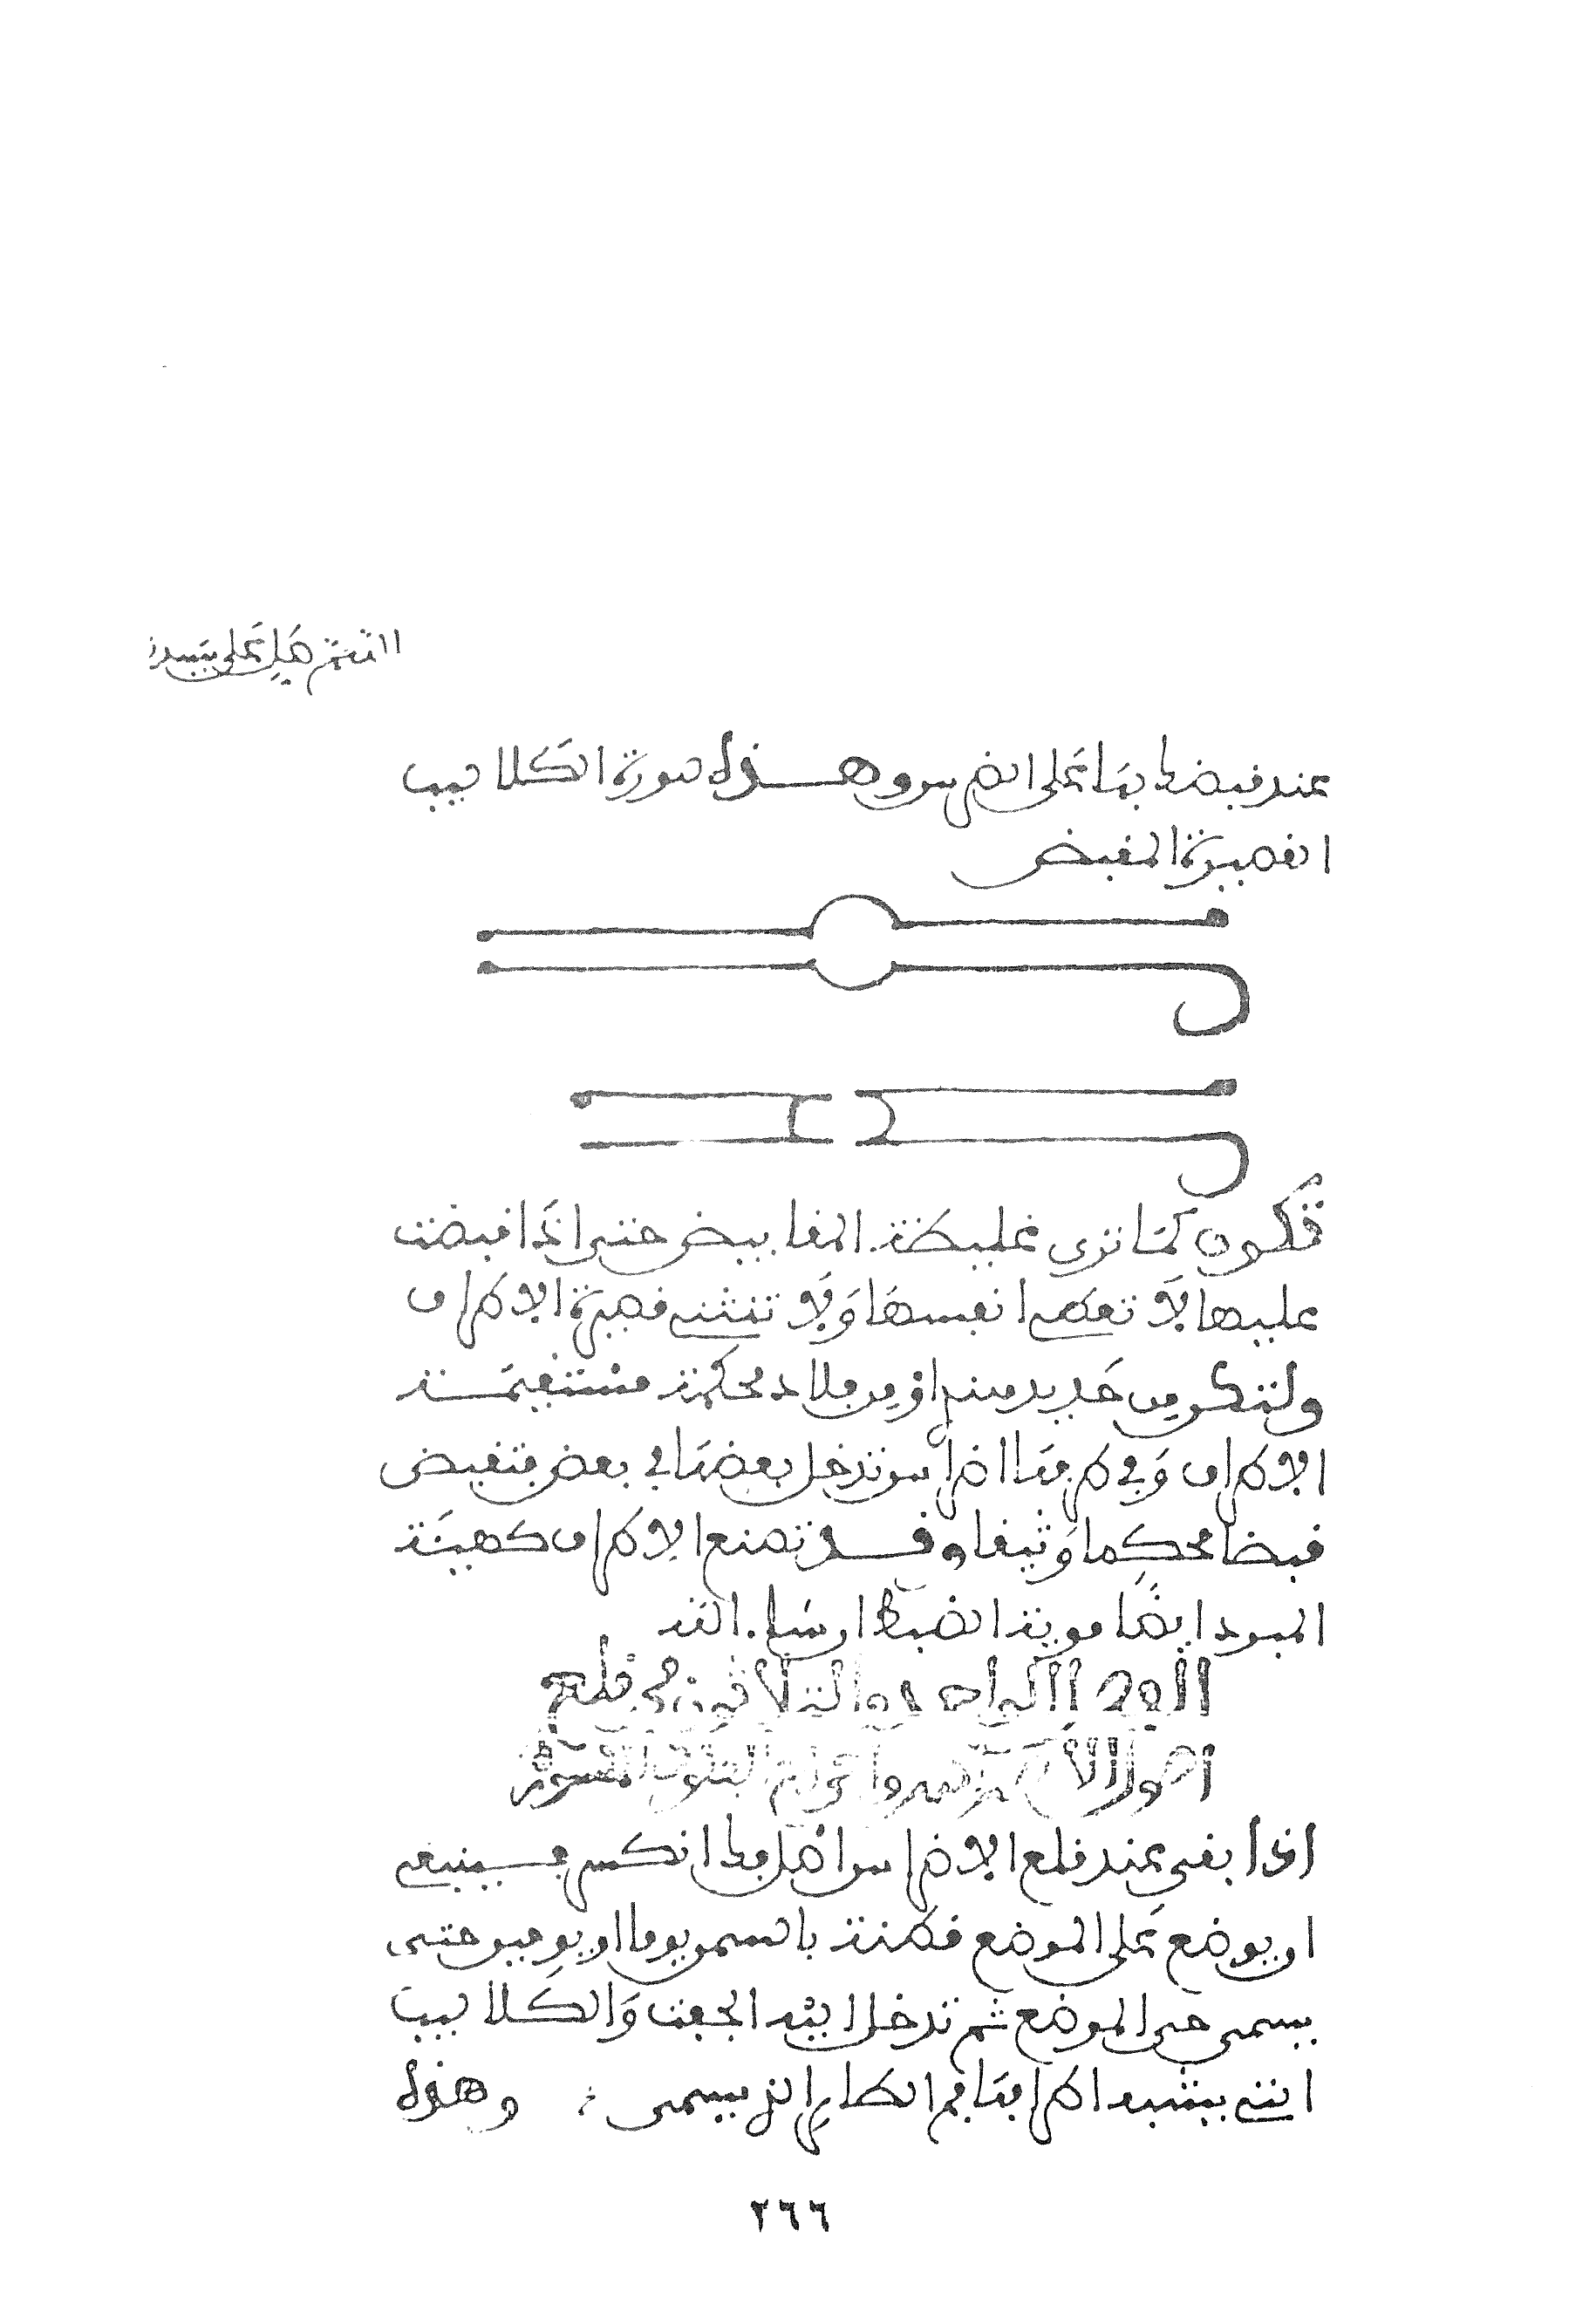 عند قبضك بها على الضرس وهذه صورة الكلاليب
القصيرة المقبض
تكون كما ترى غليظة المقابيض حتى اذا قبضت
عليها لا تعطى انفسها ولا تنثنى قصيرة الاطراف
ولتكن من حديد
محكمة مستقيمة
الاطراف وفي طرفها اضراس تدخل بعضها في بعض فتقبض
قبضا محكما وثيقا وقد تصنع الاطراف كهيئة
المبرد ايضا قوية الضبط ان شا الله
الفصل الواحد والثلاثون في قلع
اصول الاضراس واخراج
اذا بقى عند قلع الاضراس اصل قد انكسر فينبغى
ان يوضع على الموضع قطنة بالسمن يوما او يومين حتى
يسترخى الموضع ثم تدخل اليه الجفت والكلاليب
التى يشبه اطرافها فم الطاير الذى يسمى وهذه
٢٦٦